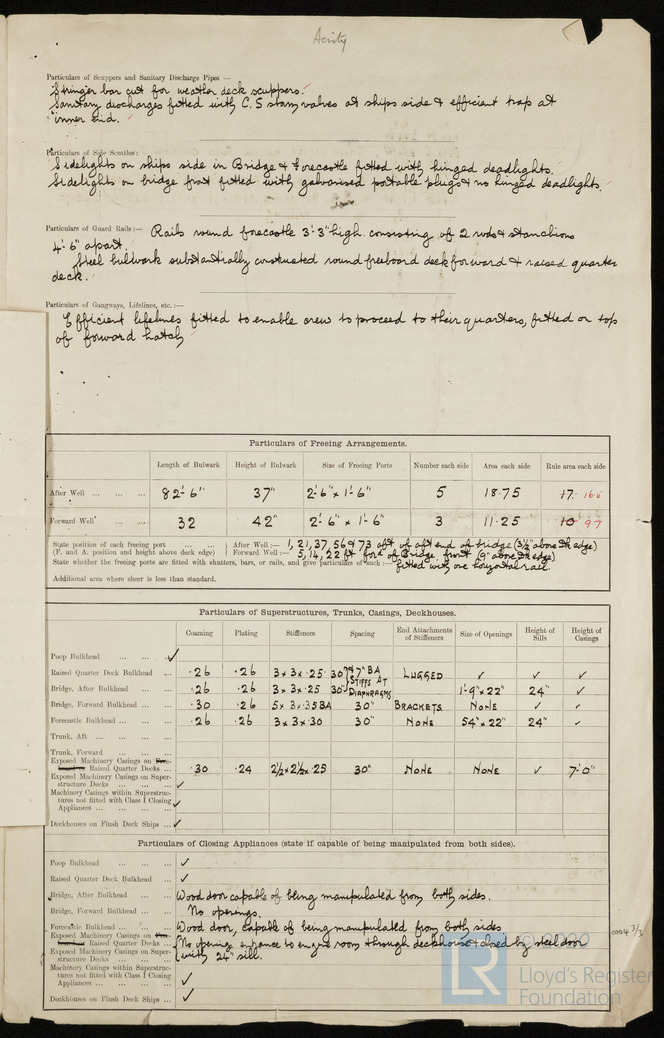 Acrity
Particulars of Scuppers and Sanitary Discharge Pipes —
Stringer bar cut for weather deck scuppers.
Sanitary discharges fitted with C.S storm valves at ships side & efficient trap at
inner end.
Particulars of Side Scuttles:—
Sidelights on ships side in Bridge & Forecastle fitted with hinged deadlights.
Sidelights on bridge front fitted with galvanised portable plugs & no hinged deadlights.
Particulars of Guard Rails:— Rails round forecastle 3'-3" high consisting of 2 rods & stanchions
4'-6" apart.
Steel bulwark substantially constructed round freeboard deck forward & raised quarter
deck.
Particulars of Gangways, Lifelines, etc.:—
Efficient lifelines fitted to enable crew to proceed to their quarters, fitted on top
of forward hatch
Particulars of Freeing Arrangements.
Length of Bulwark Height of Bulwark Size of Freeing Ports Number each side Area each side Rule area each side
After Well ... ... ... 82'-6" 37" 2'-6" x 1'-6" 5 18.75 17. 16.6
Forward Well ... ... 32 42" 2'-6" x 1'-6" 3 11.25 10 9.7
State position of each freeing port ... After Well:— 1, 21, 37, 56 & 73 aft of aft end of bridge (3½" above dk edge)
(F. and A. position and height above deck edge) Forward Well:— 5, 14, 22 ft for'd of Bridge front (9" above dk edge)
State whether the freeing ports are fitted with shutters, bars, or rails, and give particulars of such:— fitted with one horizontal rail.
Additional area where sheer is less than standard.
Particulars of Superstructures, Trunks, Casings, Deckhouses.
Coaming Plating Stiffeners Spacing End Attachments of Stiffeners Size of Openings Height of Sills Height of Casings
Poop Bulkhead ... ... ... ✓
Raised Quarter Deck Bulkhead ... .26 .26 3 x 3 x .25 30" & 7" BA STIFFS AT DIAPHRAGMS LUGGED ✓ ✓ ✓
Bridge, After Bulkhead ... ... .26 .26 3 x 3 x .25 30" 1'-9" x 22" 24" ✓
Bridge, Forward Bulkhead ... .30 .26 5 x 3 x .35 BA 30" BRACKETS. NONE ✓ ✓
Forecastle Bulkhead ... ... .26 .26 3 x 3 x .30 30" NONE 54" x 22" 24" ✓
Trunk, Aft ... ... ...
Trunk, Forward ... ...
Exposed Machinery Casings on
Raised Quarter Decks ... .30 .24 2½ x 2½ x .25 30" NONE NONE ✓ 7'-0"
Exposed Machinery Casings on Super-
structure Decks ... ... ✓
Machinery Casings within Superstruc-
tures not fitted with Class I Closing
Appliances ... ... ... ✓
Deckhouses on Flush Deck Ships ... ✓
Particulars of Closing Appliances (state if capable of being manipulated from both sides).
Poop Bulkhead ... ... ... ✓
Raised Quarter Deck Bulkhead ... ✓
Bridge, After Bulkhead ... ... Wood door capable of being manipulated from both sides.
Bridge, Forward Bulkhead ... No openings.
Forecastle Bulkhead ... ... Wood door, capable of being manipulated from both sides
Exposed Machinery Casings on
Raised Quarter Decks ... No opening entrance to engine room through deckhouse closed by steel door
Exposed Machinery Casings on Super-
structure Decks ... ... with 24" sill.
Machinery Casings within Superstruc-
tures not fitted with Class I Closing
Appliances ... ... ... ✓
Deckhouses on Flush Deck Ships ... ✓
0004 3/3
© 2020
LR
Lloyd's Register
Foundation